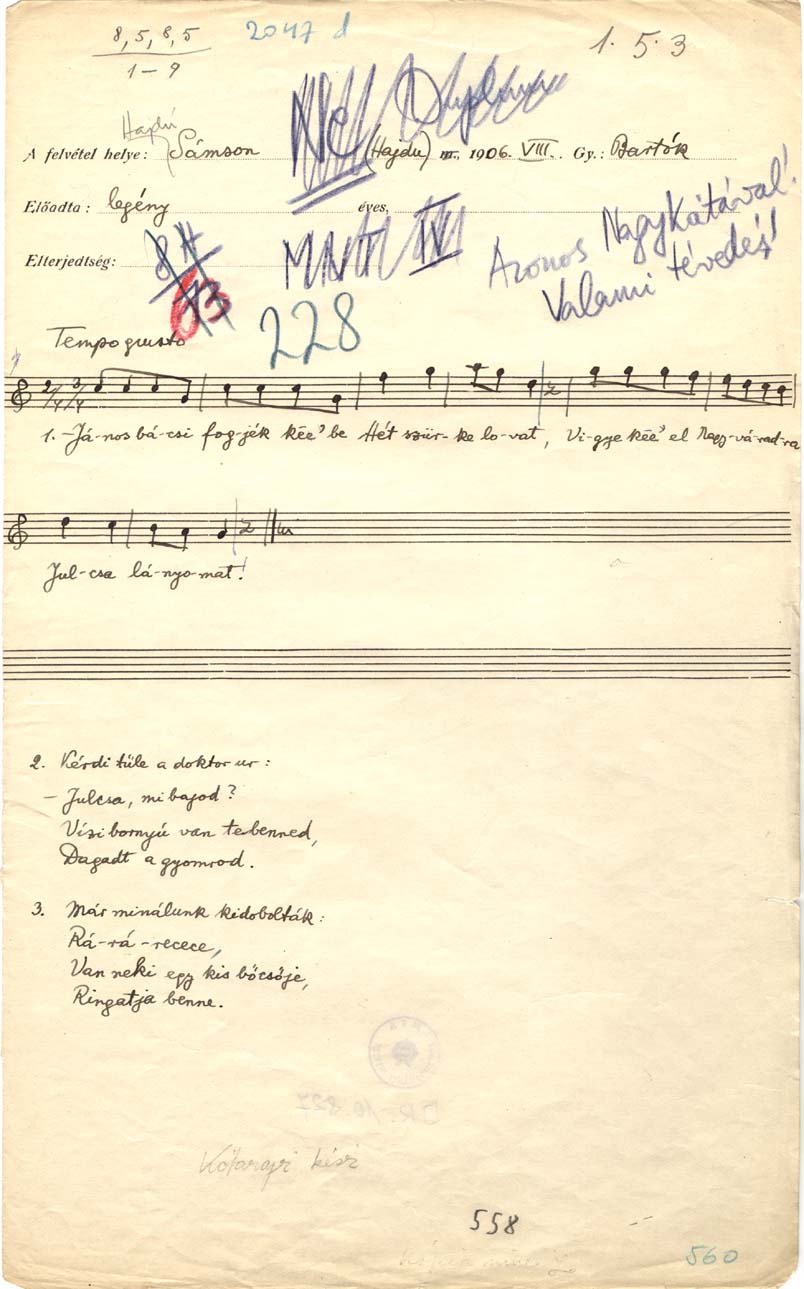 8, 5, 8, 5
1-9
2047 d
1. 5. 3
Hajdú
A felvétel helye: Sámson (Hajdu) m., 1906. VIII. Gy.: Bartók
Előadta: legény éves,
Elterjedtség:
Azonos Nagykátával!
Valami tévedés!
63
228
Tempo giusto
2/4 3/4
1. -Já-nos bá-csi fog-jék kee' be Hét szür-ke lo-vat, Vi-gye kee' el Nagy-vá-rad-ra
Jul-csa lá-nyo-mat!
2. Kérdi tüle a doktor ur:
- Julcsa, mi bajod?
Vízibornyú van tebenned,
Dagadt a gyomrod.
3. Már minálunk kidobolták:
Rá-rá-recece,
Van neki egy kis bőcsője,
Ringatja benne.
558
560